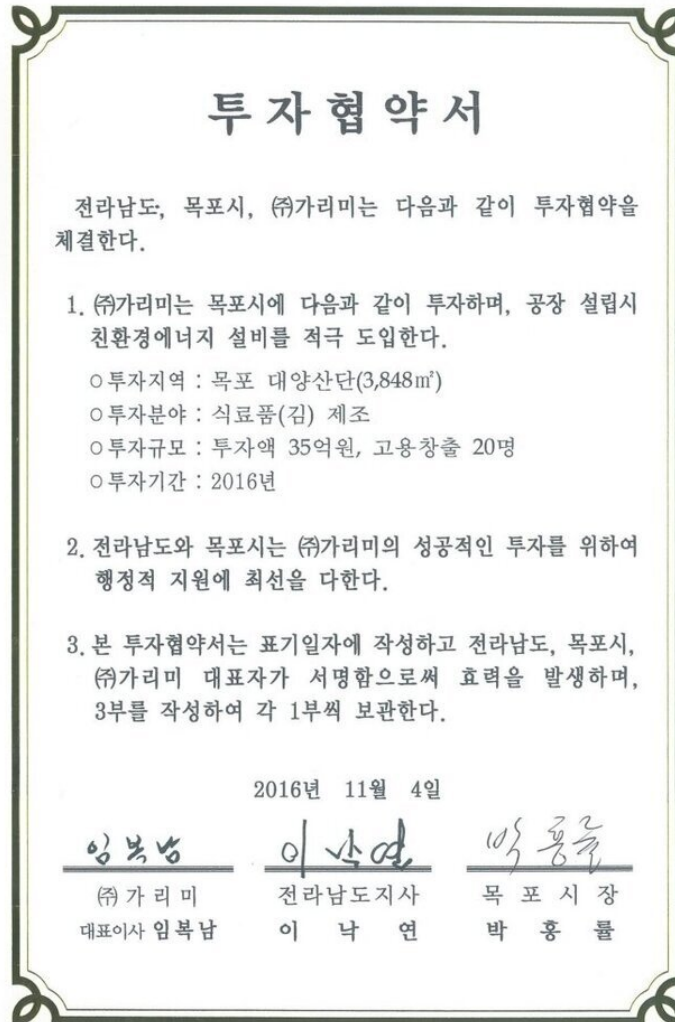 투자협약서
전라남도, 목포시, ㈜가리미는 다음과 같이 투자협약을
체결한다.
1. ㈜가리미는 목포시에 다음과 같이 투자하며, 공장 설립시
친환경에너지 설비를 적극 도입한다.
○투자지역 : 목포 대양산단(3,848㎡)
○투자분야 : 식료품(김) 제조
○투자규모 : 투자액 35억원, 고용창출 20명
○투자기간 : 2016년
2. 전라남도와 목포시는 ㈜가리미의 성공적인 투자를 위하여
행정적 지원에 최선을 다한다.
3. 본 투자협약서는 표기일자에 작성하고 전라남도, 목포시,
㈜가리미 대표자가 서명함으로써 효력을 발생하며,
3부를 작성하여 각 1부씩 보관한다.
2016년 11월 4일
임복남 이낙연 박홍률
㈜가리미 전라남도지사 목포시장
대표이사 임복남 이낙연 박홍률